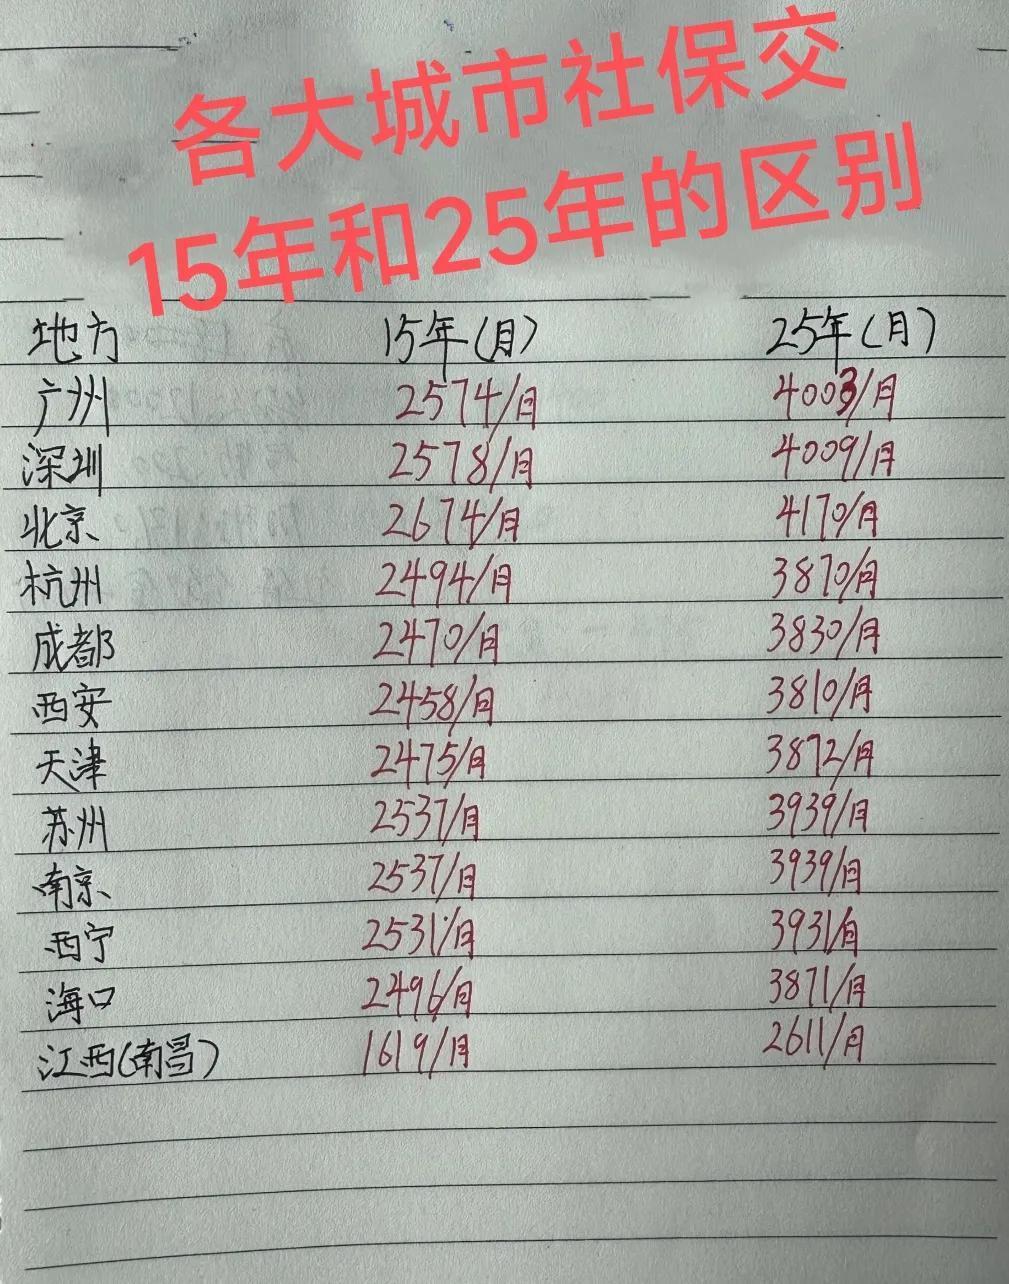 各大城市社保交
15年和25年的区别
地方 15年(月) 25年(月)
广州 2574/月 4003/月
深圳 2578/月 4009/月
北京 2674/月 4170/月
杭州 2494/月 3870/月
成都 2470/月 3830/月
西安 2458/月 3810/月
天津 2475/月 3872/月
苏州 2537/月 3939/月
南京 2537/月 3939/月
西宁 2531/月 3931/月
海口 2496/月 3871/月
江西(南昌) 1619/月 2611/月